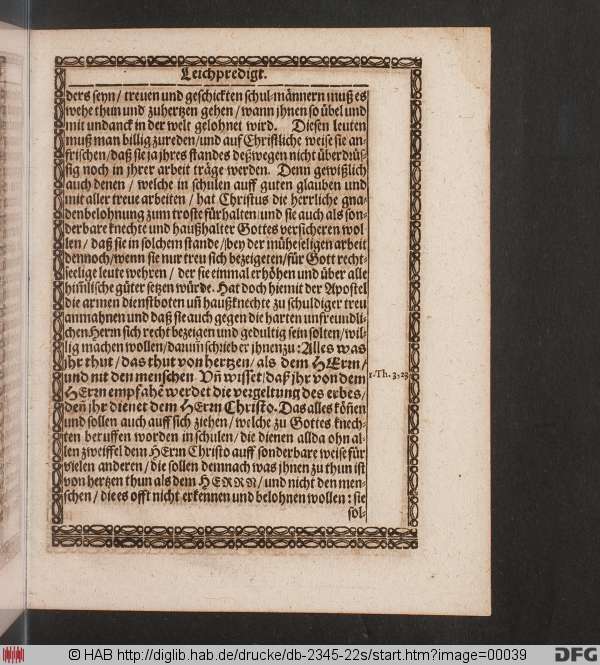 Leichpredigt.
ders seyn / treuen und geschickten schul-männern muß es
wehe thun und zuhertzen gehen / wann jhnen so übel und
mit undanck in der welt gelohnet wird. Diesen leuten
muß man billig zureden / und auf Christliche weise sie an-
frischen / daß sie ja jhres standes deßwegen nicht überdrüs-
sig noch in jhrer arbeit träge werden. Denn gewißlich
auch denen / welche in schulen auff guten glauben und
mit aller treue arbeiten / hat Christus die herrliche gna-
denbelohnung zum troste fürhalten / und sie auch als son-
derbare knechte und haußhalter Gottes versicheren wol
len / daß sie in solchem stande / bey der müheseligen arbeit
dennoch / wenn sie nur treu sich bezeigeten / für Gott recht-
seelige leute wehren / der sie einmal erhöhen und über alle
him̃lische güter setzen würde. Hat doch hiemit der Apostel
die armen dienstboten uñ haußknechte zu schuldiger treu
anmahnen und daß sie auch gegen die harten unfreundli-
chen Herrn sich recht bezeigen und gedultig sein solten / wil-
lig machen wollen / darum̃ schrieb er jhnen zu: Alles was
jhr thut / das thut von hertzen / als dem HErrn /
und nit den menschen Uñ wisset / daß jhr von dem
HErrn empfahẽ werdet die vergeltung des erbes /
deñ jhr dienet dem HErrn Christo. Das alles köñen
und sollen auch auff sich ziehen / welche zu Gottes knech-
ten beruffen worden in schulen / die dienen allda ohn al-
len zweiffel dem HErrn Christo auff sonderbare weise für
vielen anderen / die sollen demnach was jhnen zu thun ist
von hertzen thun als dem HERRN / und nicht den men-
schen / die es offt nicht erkennen und belohnen wollen: sie
sol-
1. Th. 3, 23
© HAB http://diglib.hab.de/drucke/db-2345-22s/start.htm?image=00039
DFG